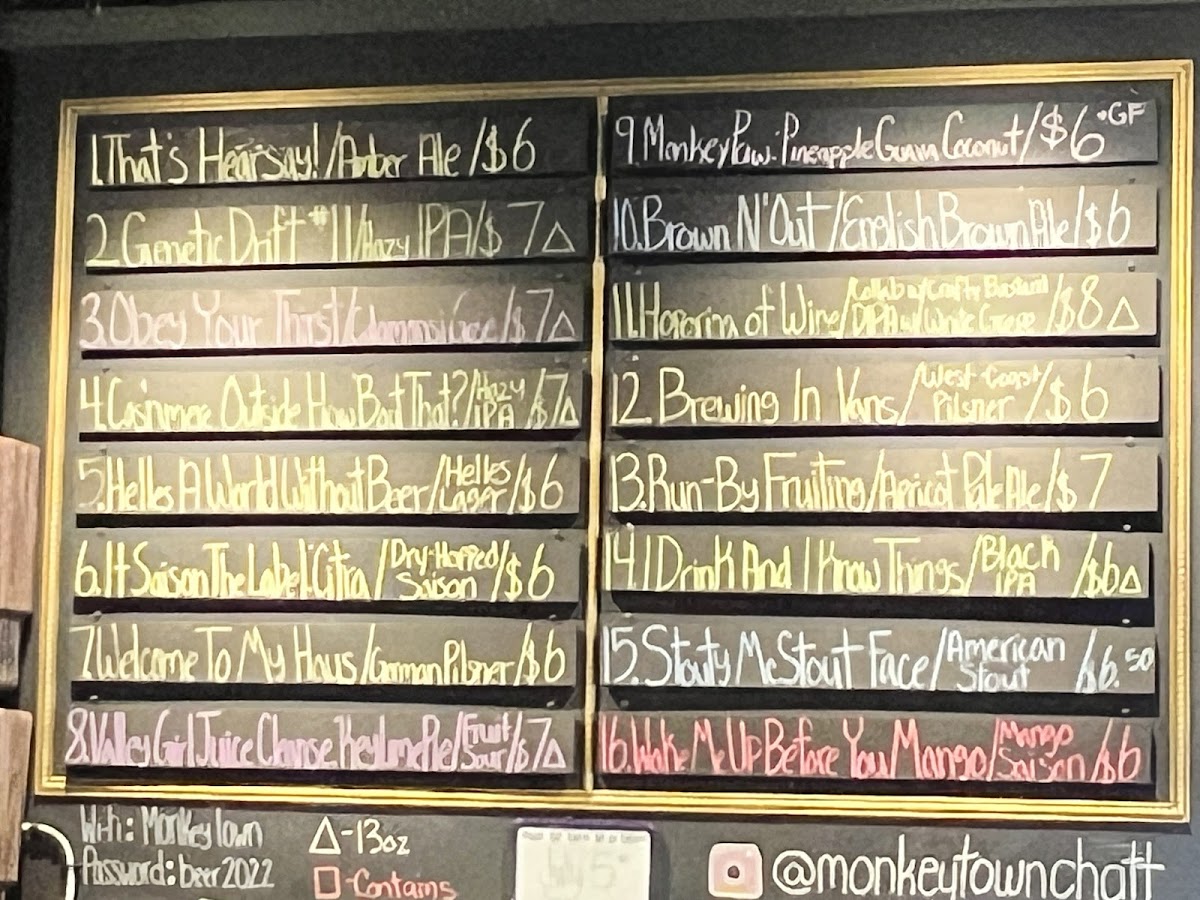 1. That's Hearsay! / Amber Ale / $6
2. Genetic Drift #11 / Hazy IPA / $7 △
3. Obey Your Thirst / $7 △
4. Cashmere Outside How Bout That? / Hazy IPA / $7 △
5. Helles A World Without Beer / Helles Lager / $6
6. It Saison The Label: Citra / Dry-Hopped Saison / $6
7. Welcome To My Haus / German Pilsner / $6
8. Valley Girl Juice Cleanse Key Lime Pie / Fruit Sour / $7 △
9. Monkey Paw: Pineapple Guava Coconut / $6 •GF
10. Brown N' Out / English Brown Ale / $6
11. of Wine / Collab w/ Crafty Bastard DIPA w/ White Grape / $8 △
12. Brewing In Vans / West-Coast Pilsner / $6
13. Run-By Fruiting / Apricot Pale Ale / $7
14. I Drink And I Know Things / Black IPA / $6 △
15. Stouty McStout Face / American Stout / $6.50
16. Wake Me Up Before You Mango / Mango Saison / $6
Wifi: Monkey Town
Password: beer2022
△ - 13oz
□ - Contains
@monkeytownchatt